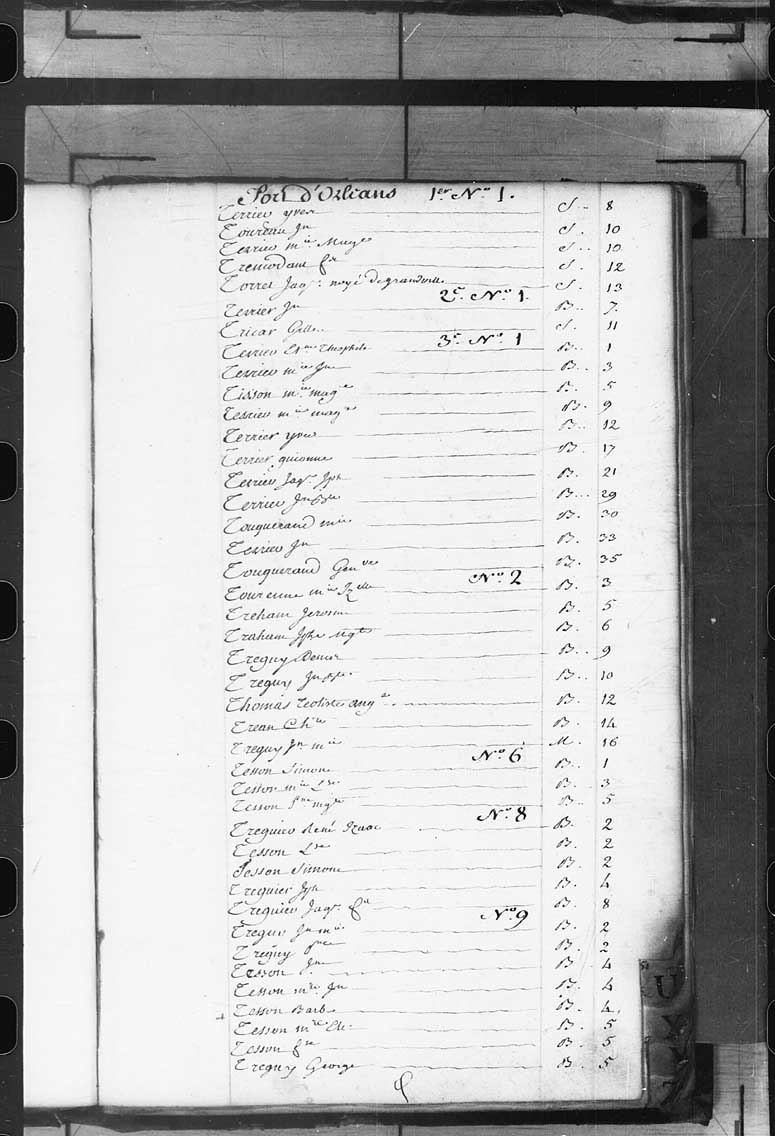 Port d'Orléans 1er No 1.
Terrier yves S - 8
Toureau Jn S. 10
Terrier mie S.. 10
Tremodant fs S. 12
Torret Jaqs. noyé de grandville S. 13
2e. No 1.
Terrier Jn B.. 7.
Tricar Gille S. 11
3e. No 1
Terrier Theophile B.. 1
Terrier mie Jne B.. 3
Tisson mie magne B. 5
Terrier mie magne B. 9
Terrier yves B.. 12
Terrier guionne B. 17
Terrier Jaqs. Jph B. 21
Terrier Jn Bte B... 29
Touquerand mie B. 30
Terrier Jn B. 33
Touquerand Genve B. 35
No 2
Tourenne mie B. 3
Treham Jerosme B. 5
Traham B. 6
Treguy B.. 9
Treguy Jn Bte. B... 10
Thomas ange. B. 12
Trean B. 14
Treguy Jn mie M. 16
No 6
Tesson Simone B.. 1
Tesson mie Lse B. 3
Tesson B.. 5
No 8
Treguier René Izaac B. 2
Tesson Lse B. 2
Tesson Simone B. 2
Treguier Jph B. 4
Treguier Jaqs. B. 8
No 9
Treguy Jn mie B. 2
Treguy B. 2
Tesson Jne B. 4
Tesson mie Jn B. 4
+ Tesson Barbe B. 4.
Tesson mie B. 5
Tesson B. 5
Treguy George B. 5